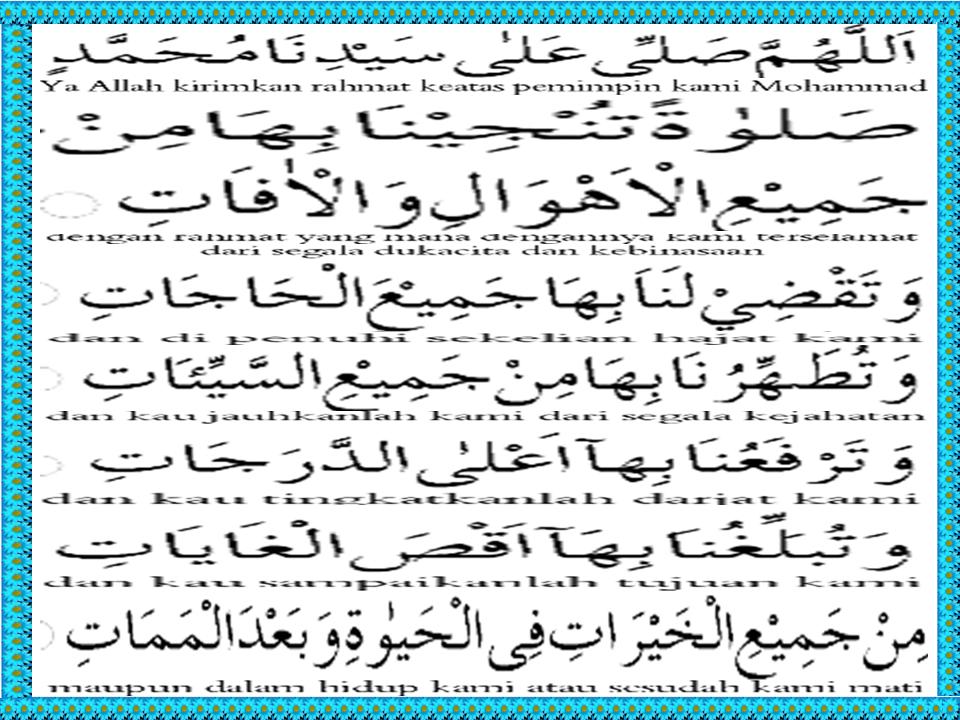 اَللّٰهُمَّ صَلِّى عَلٰى سَيِّدِنَا مُحَمَّدٍ
Ya Allah kirimkan rahmat keatas pemimpin kami Mohammad
صَلٰوةً تُنْجِيْنَا بِهَا مِنْ
جَمِيْعِ الْاَهْوَالِ وَالْاٰفَاتِ
dengan rahmat yang mana dengannya kami terselamat
dari segala dukacita dan kebinasaan
وَتَقْضِيْ لَنَا بِهَا جَمِيْعَ الْحَاجَاتِ
dan di penuhi sekelian hajat kami
وَتُطَهِّرُنَا بِهَا مِنْ جَمِيْعِ السَّيِّئَاتِ
dan kau jauhkanlah kami dari segala kejahatan
وَتَرْفَعُنَا بِهَآ اَعْلٰى الدَّرَجَاتِ
dan kau tingkatkanlah darjat kami
وَتُبَلِّغُنَا بِهَآ اَقْصَ الْغَايَاتِ
dan kau sampaikanlah tujuan kami
مِنْ جَمِيْعِ الْخَيْرَاتِ فِى الْحَيٰوةِ وَبَعْدَ الْمَمَاتِ
maupun dalam hidup kami atau sesudah kami mati